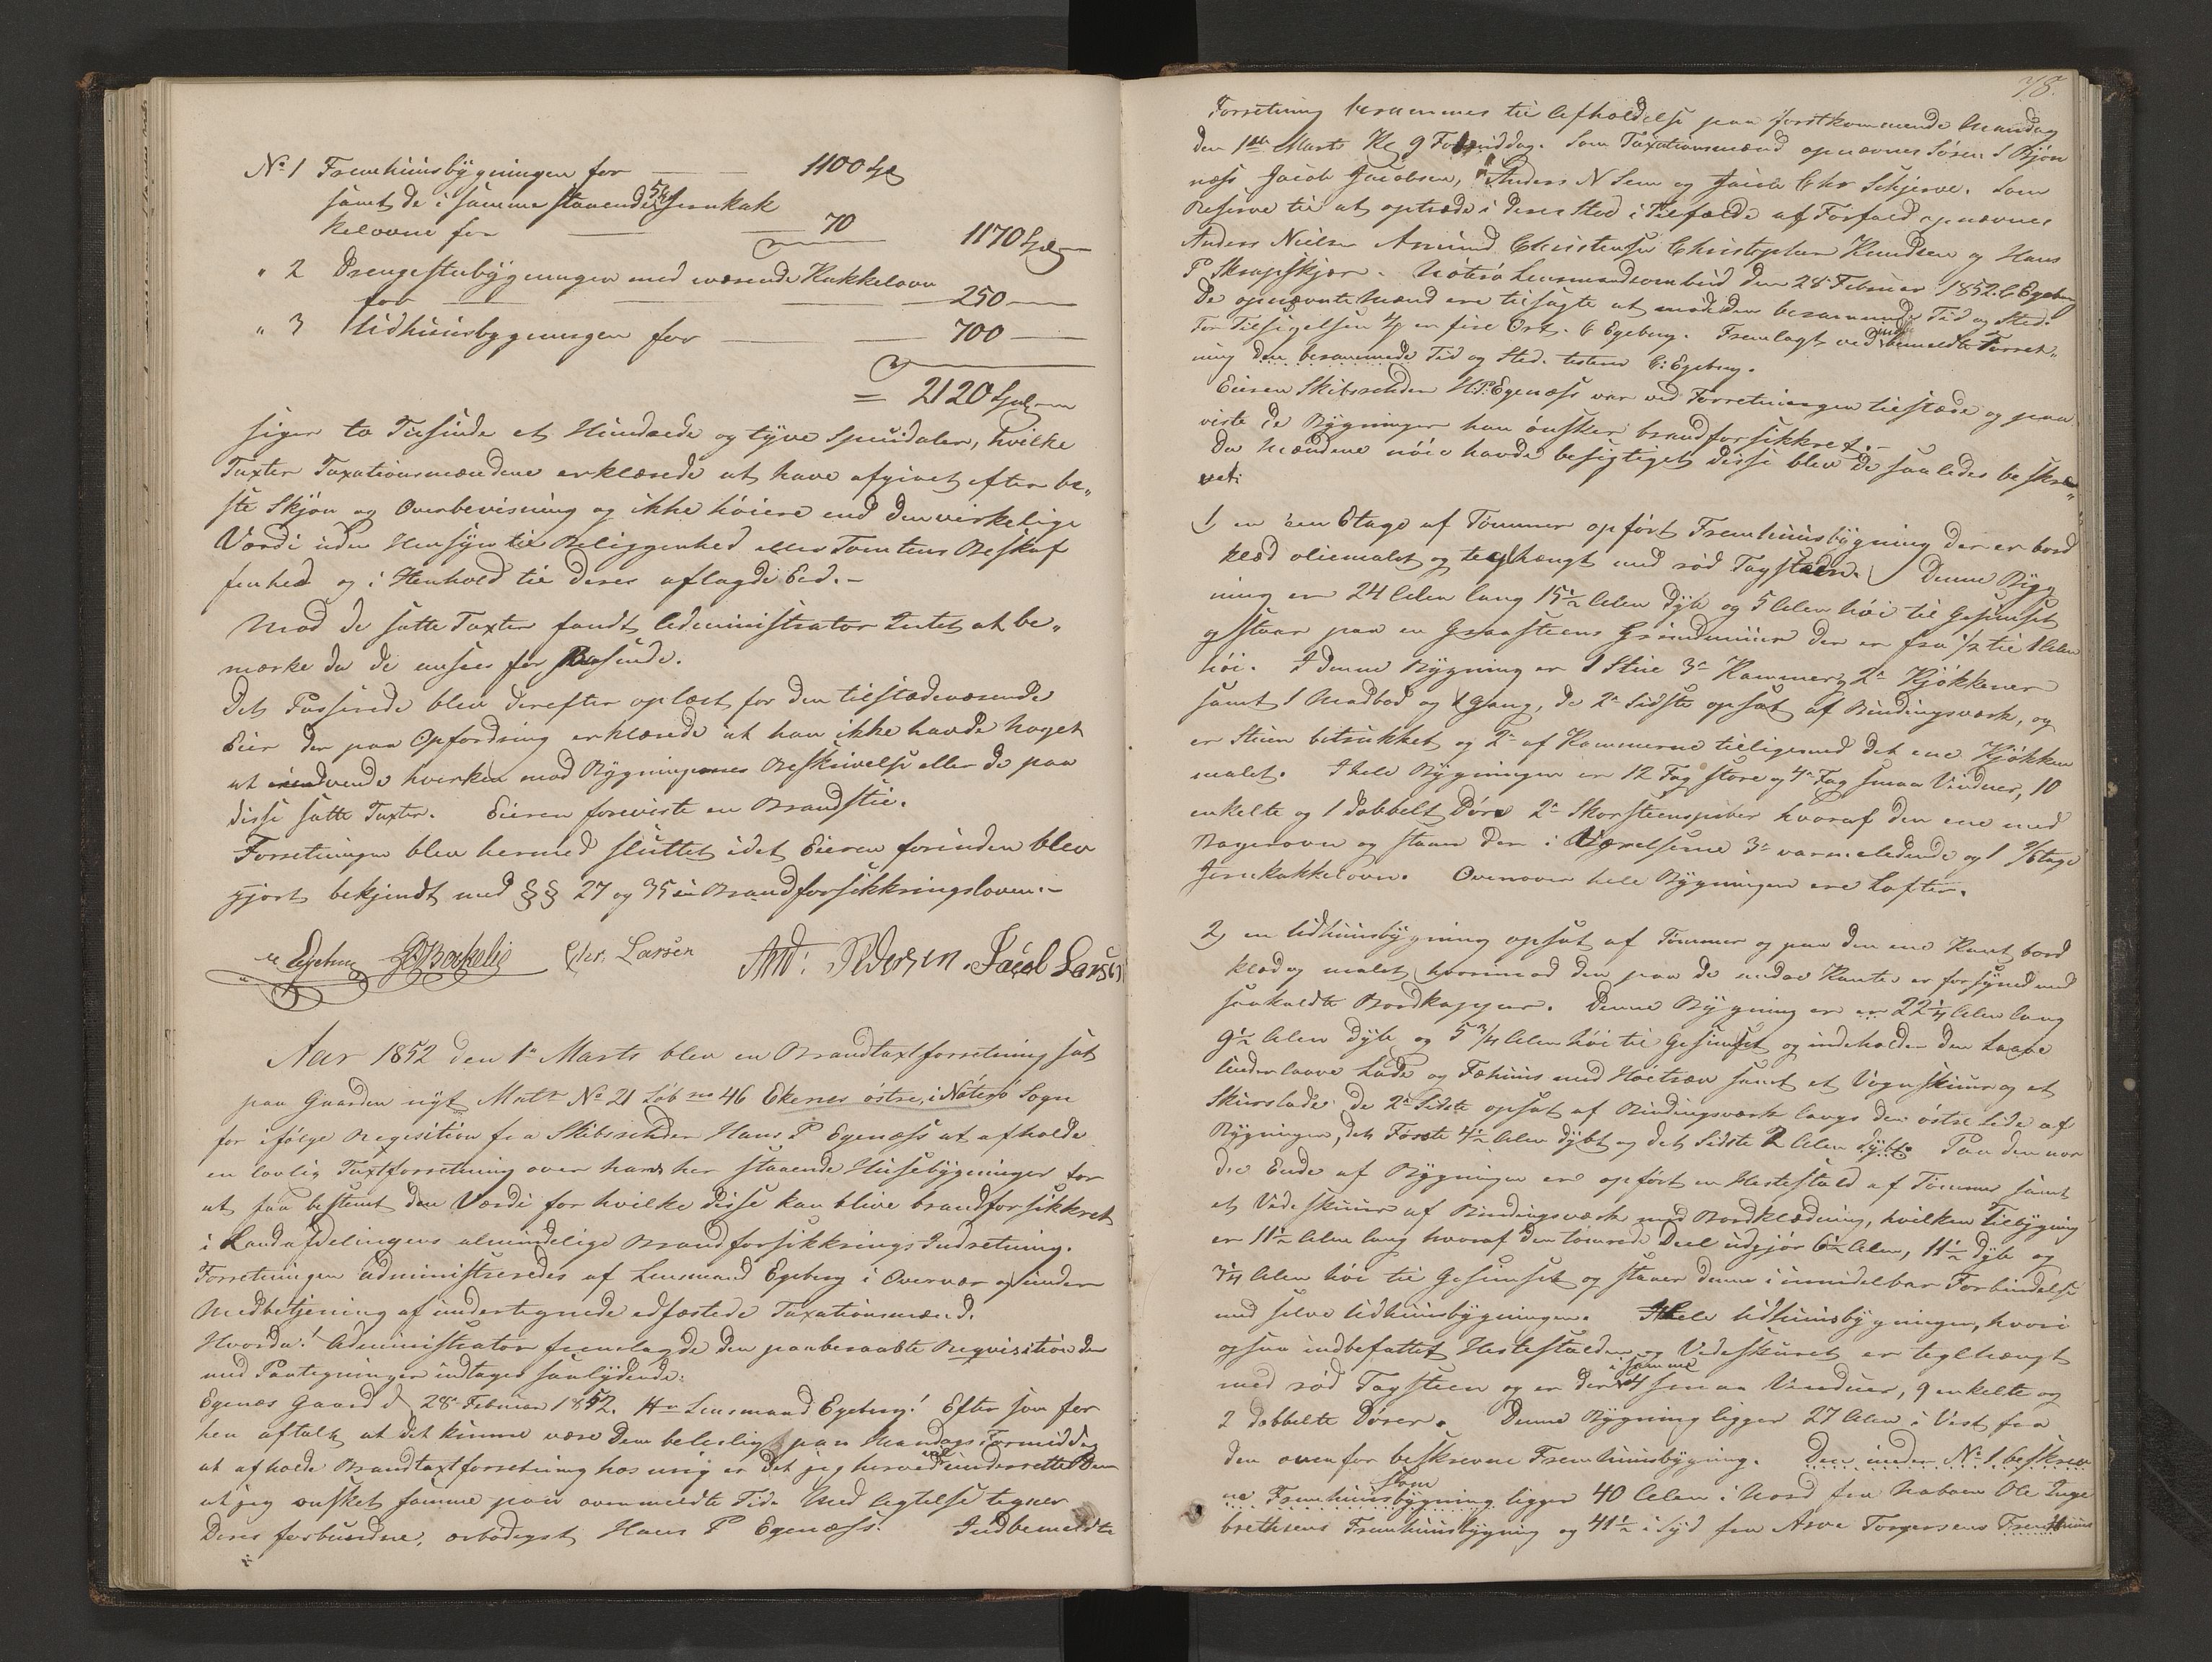 No 1 Fremhuusbygningen for — — 1100 Spd
samt de i samme staaende 5 Jernkak
kelovne for — — 70 1170 Spd
" 2 Drengestubygningen med værende Kakkelovn
for — — — 250 —
" 3 Udhuusbygningen for — — 700 —
= 2120 Spd
siger to Tusinde et Hundrede og tyve Speciedaler, hvilke
Taxter Taxationsmændene erklærede at have afgivet efter be„
ste Skjøn og Overbeviisning og ikke høiere end den virkelige
Værdi uden Hensyn til Beliggenhed eller Tomtens Beskaf
fenhed og i Henhold til deres aflagde Eed.–
Mod de satte Taxter fandt Administrator Intet at be„
mærke da de ansees for passende.
Det Passerede blev derefter oplæst for den tilstædeværende
Eier der paa Opfordring erklærede at han ikke havde noget
at indvende hverken mod Bygningernes Beskrivelse eller de paa
disse satte Taxter. Eieren foreviste en Brandstie.
Forretningen blev hermed sluttet idet Eieren forinden blev
gjort bekjendt med §§ 27 og 35 i Brandforsikkringsloven.–
Egeberg Chr. Larsen And: Pedersen. Jacob Larsen
Aar 1852 den 1e Marts blev en Brandtaxtforretning sat
paa Gaarden nyt Matr No 21 Løb no 46 Ekenes østre, i Nøterø Sogn
for ifølge Reqvisition fra Skibsrheder Hans P Egenæss at afholde
en lovlig Taxtforretning over hans her staaende Huusebygninger for
at faa bestemt den Værdi for hvilke disse kan blive brandforsikkret
i Landafdelingens almindelige Brandforsikkrings Indretning.
Forretningen administreredes af Lensmand Egeberg i Overvær og under
Medbetjening af undertegnede edfæstede Taxationsmænd.
Hvorda! Administrator fremlagde den paaberaabte Reqvisition der
med Paategninger indtages saalydende:
Egenæs Gaard d 28 Februar 1852. Hr Lensmand Egeberg! Efter som før
hen aftalt at det kunne være Dem beleiligt paa Mandags Formiddag
at afholde Brandtaxtforretning hos mig er det jeg herved underretter Dem
at jeg ønsket samme paa ovenmeldte Tid. Med Agtelse tegner
Deres forbundne, ærbødigst Hans P Egenæss. Indbemeldte
78.
Forretning berammes til Afholdelse paa førstkommende Mandag
den 1ste Marts Kl 9 Formiddag. Som Taxationsmænd opnævnes Søren S Bjøn
næss Jacob Jacobsen, Anders N Sem og Jacob Chr Schjerve. Som
Reserve til at optræde i deres Sted i Tilfælde af Forfald opnævnes
Anders Nielsen Amund Christensen Christopher Knudsen og Hans
P Skrapskjær. Nøterø Lensmandsombud den 28 Februar 1852. C Egeberg
De opnævnte Mænd ere tilsagte at møde den berammede Tid og Sted.
For Tilsigelsen 4/ er fire Ort. C Egeberg. Fremlagt ved indbemeldte Forret„
ning den berammede Tid og Sted. testerer C: Egeberg.
Eieren Skibsrheder H: P: Egenæss var ved Forretningen tilstæde og paa
viste de Bygninger han ønsker brandforsikkret.–
Da Mændene nøie havde besigtiget disse blev de saaledes beskre„
vet:
1, en een Etage af Tømmer opført Fremhuusbygning der er bord
klæd oliemalet og teglhængt med rød Tagsteen. Denne Byg
ning er 24 Alen lang 15½ Alen dyb og 5 Alen høi til Gesimset
og staar paa en Graasteens Grundmuur der er fra ½ til 1 Alen
høi. I denne Bygning er 1 Stue 3e Kammere, 2e Kjøkkener
samt 1 Madbod og 1 Gang, de 2e Sidste opsat af Bindingsværk, og
er Stuen betrukket og 2e af Kammerne tilligemed det ene Kjøkken
malet. I hele Bygningen er 12 Fag store og 4e Fag smaa Vinduer, 10
enkelte og 1 dobbelt Døre 2e Skorsteenspiber hvoraf den ene med
Bagerovn og staaer der i Værelserne 3e varmeledende og 1 2/Etage
Jernkakkelovn. Ovenover hele Bygningen ere Lofter.
2, en Udhuusbygning opsat af Tømmer og paa den ene Kant bord
klæd og malet hvorimod den paa de andre Kanter er forsyned med
saakaldte Bordkapper. Denne Bygning er 22¼ Alen lang
9½ Alen dyb og 5¾ Alen høi til Gesimset og indeholder den Laave
Underlaave Lade og Fæhuus med Høetrev samt et Vognskuur og et
Skurslade: de 2e Sidste opsat af Bindingsværk langs den østre Side af
Bygningen, det Første 4½ Alen dybt og det Sidste 2 Alen dybt. Paa den nor
dre Ende af Bygningen er opført en Hestestald af Tømmer samt
et Vedeskuur af Bindingsværk med Bordklædning, hvilken Tilbygning
er 11½ Alen lang hvoraf den tømrede Deel udgjør 6½ Alen, 11½ dyb og
3¼ Alen høi til Gesimset og staaer denne i umiddelbar Forbindelse
med selve Udhuusbygningen. Hele Udhuusbygningen, hvori
ogsaa indbefattet Hestestalden og Vedeskuret er teglhængt
med rød Tagsteen og er der i samme 4 smaa Vinduer, 9 enkelte og
2 dobbelte Døre. Denne Bygning ligger 27 Alen i Vest fra
den ovenfor beskrevne Fremhuusbygning. Den under No 1 beskrev
ne Fremhuusbygning ligger 40 Alen i Nord fra Naboen Ole Inge
brethsens Fremhuusbygning og 41½ i Syd fra Arve Torgersens Fremhuus